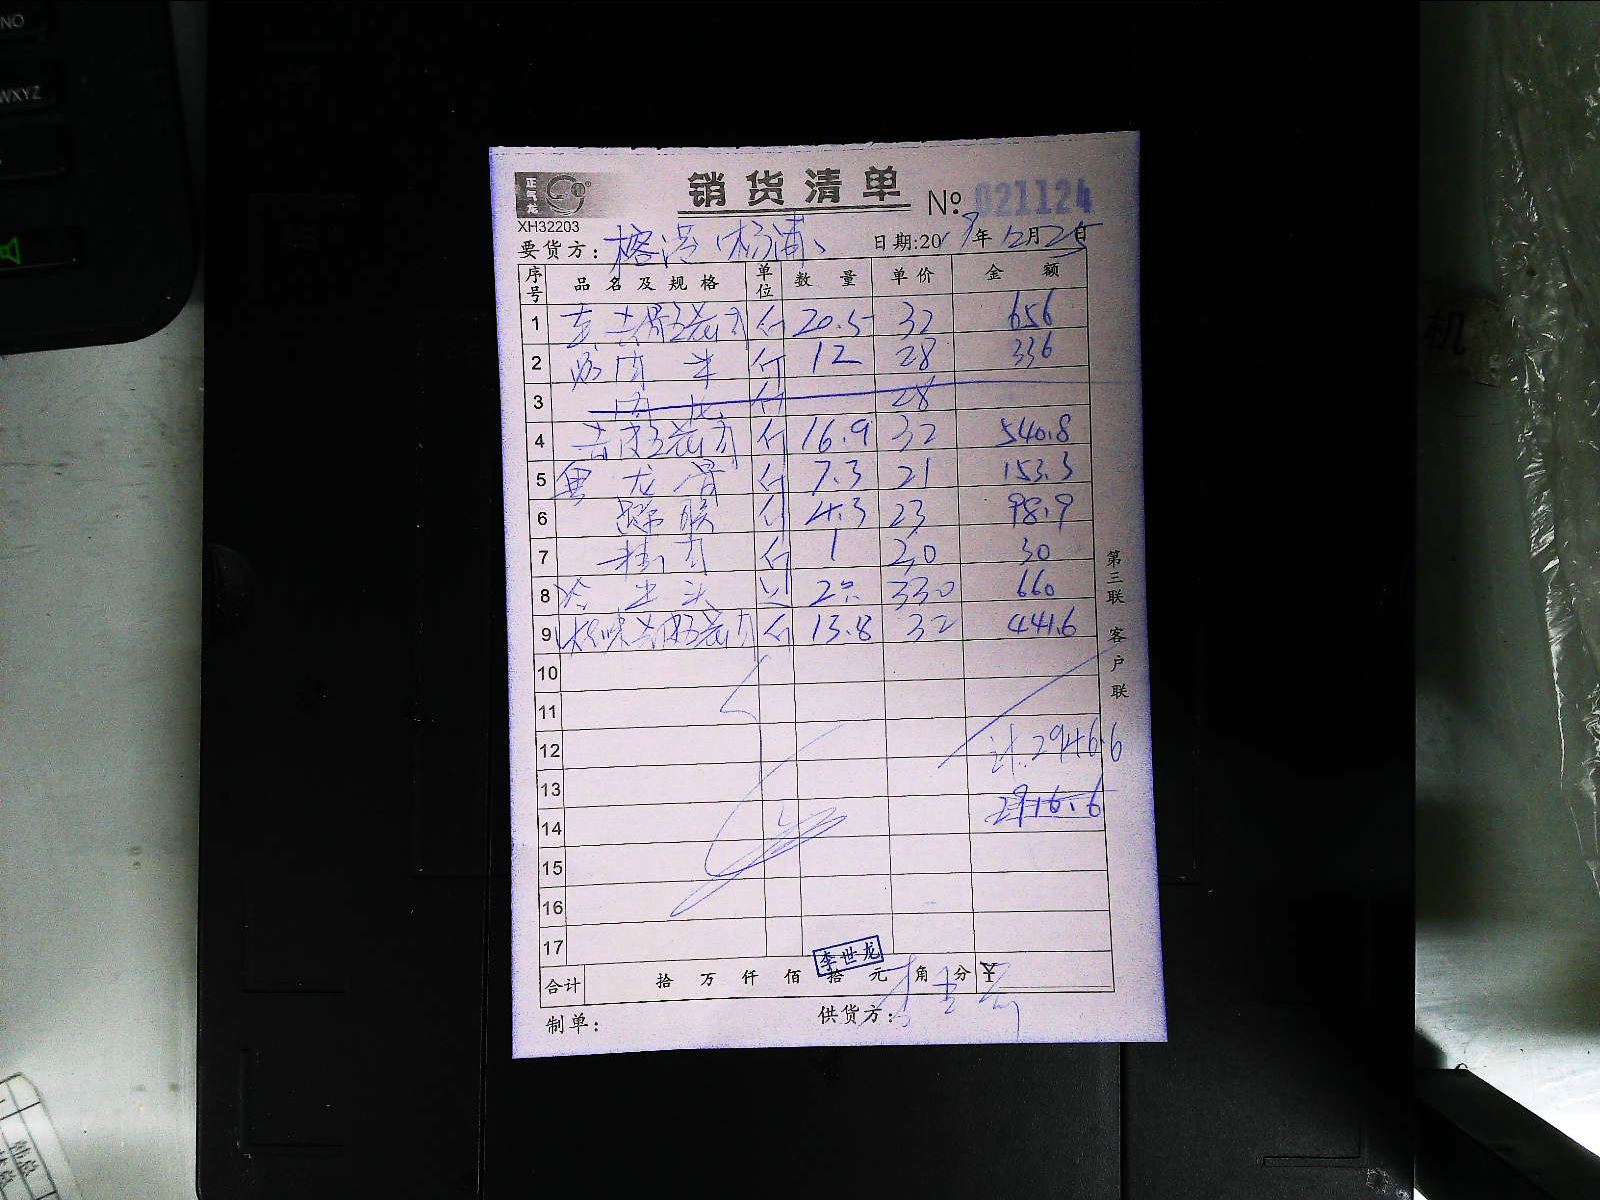 NO
WXYZ
正气龙
销货清单 №: 021124
XH32203
要货方: 榕港(杨浦) 日期:2017年12月25日
序号 品名及规格 单位 数量 单价 金额
1 去骨 斤 20.5 32 656
2 肉 斤 12 28 336
3 肉 斤 28
4 去皮五花肉 斤 16.9 32 540.8
5 龙骨 斤 7.3 21 153.3
6 斤 4.3 23 98.9
7 斤 1 30 30
8 冷 头 2 330 660
9 五花肉 斤 13.8 32 441.6
10
11
12 计:2946.6
13
14 2916.6
15
16
17
李世龙
合计 拾 万 仟 佰 拾 元 角 分 ¥
制单: 供货方: 李世龙
第三联 客户联
机